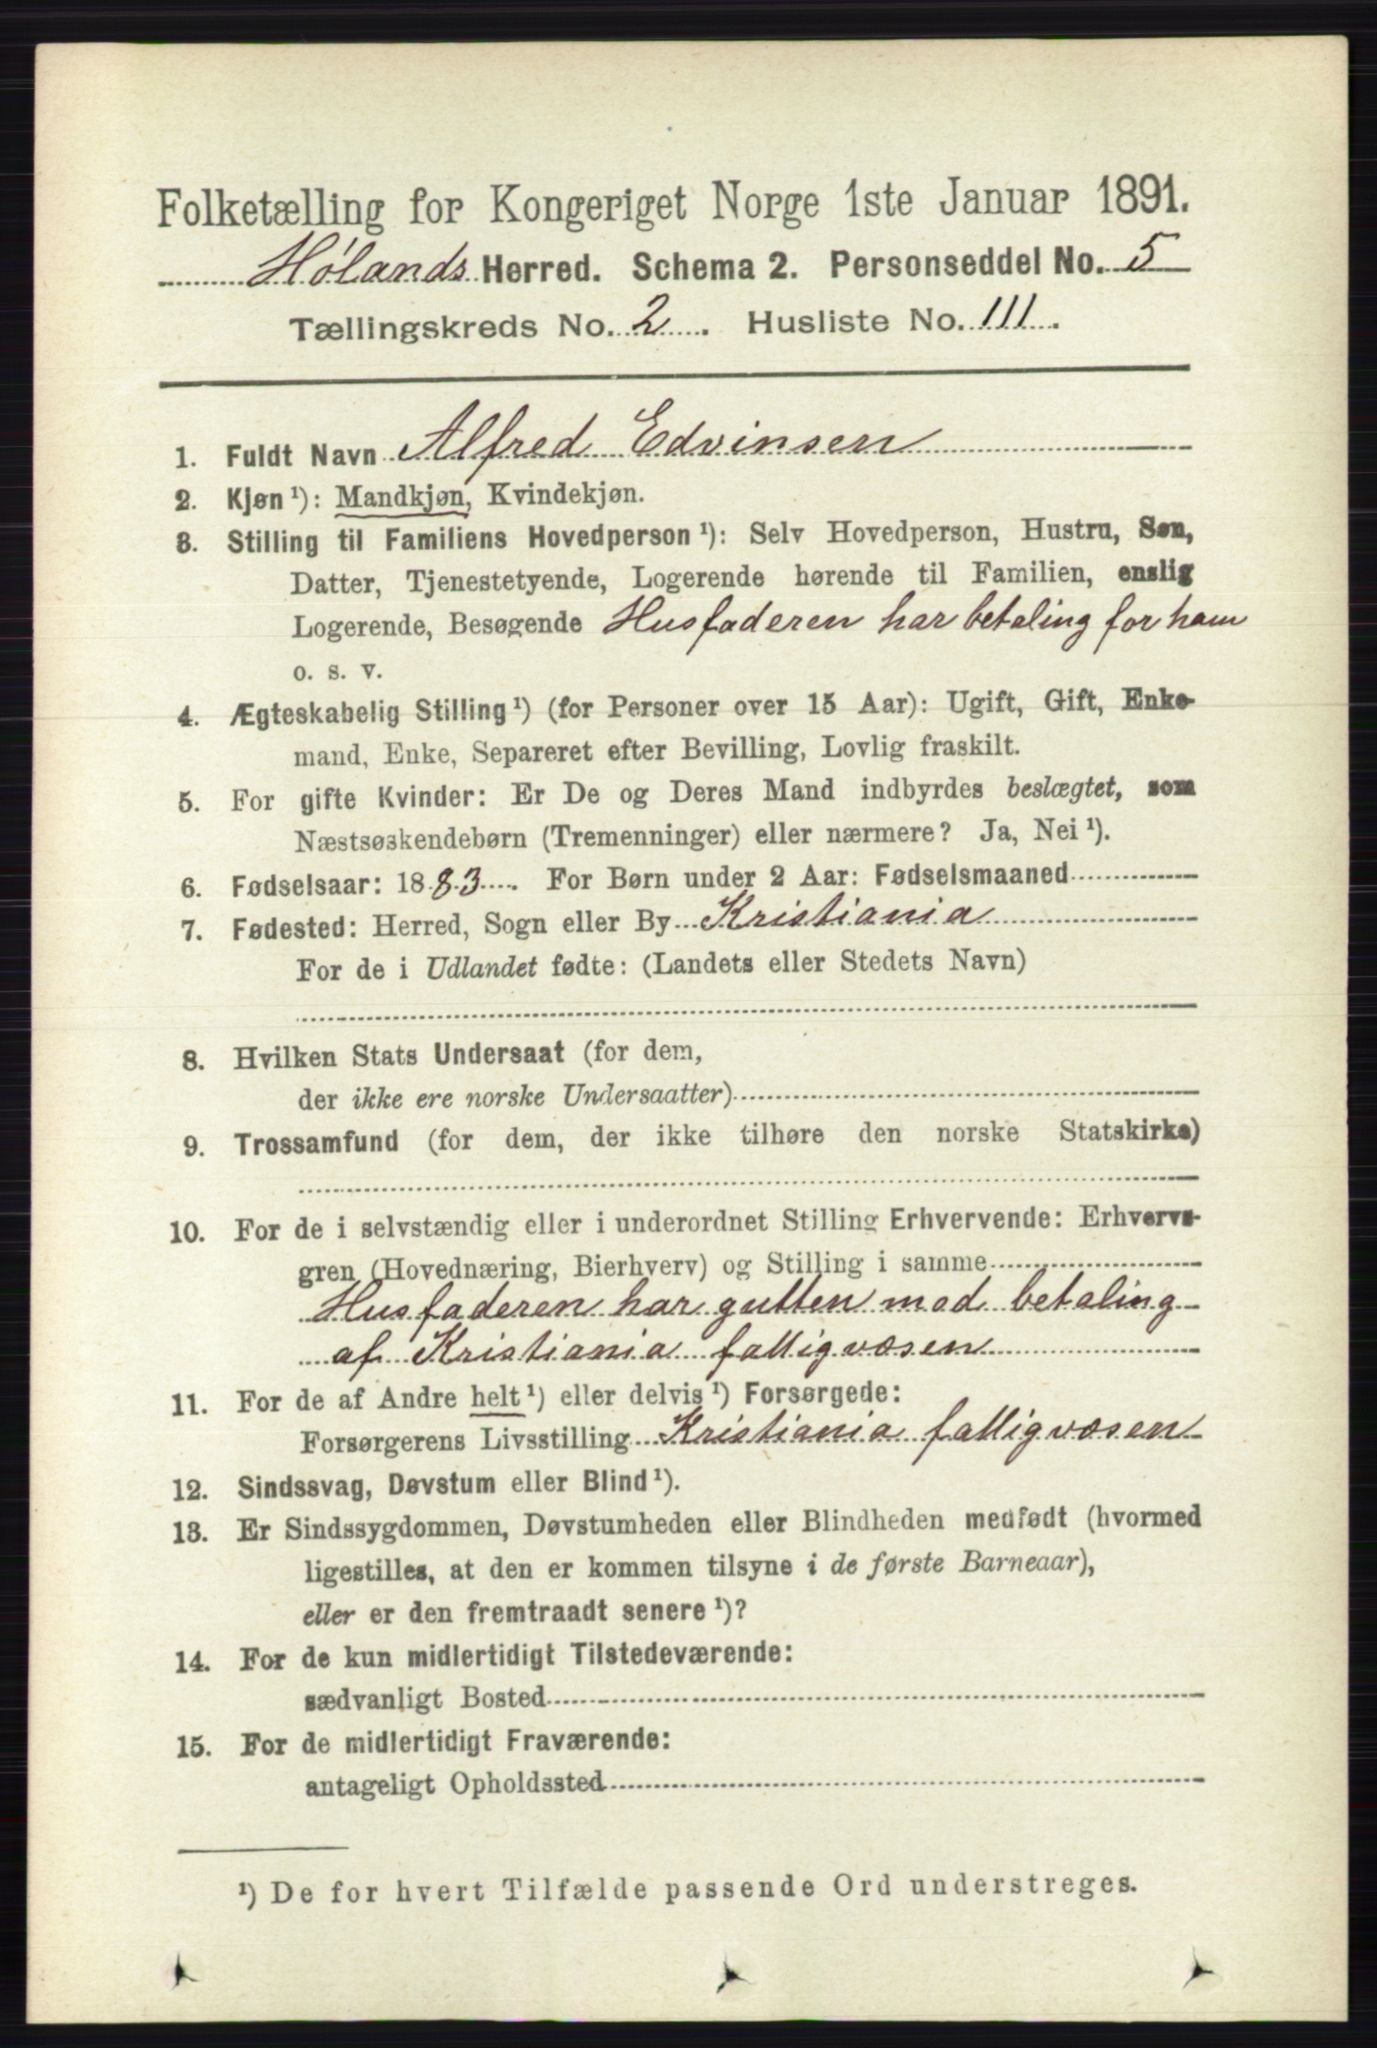 Folketælling for Kongeriget Norge 1ste Januar 1891.
Hølands Herred. Schema 2. Personseddel No. 5
Tællingskreds No. 2. Husliste No. 111.
1. Fuldt Navn Alfred Edvinsen
2. Kjøn ¹): Mandkjøn, Kvindekjøn.
3. Stilling til Familiens Hovedperson ¹): Selv Hovedperson, Hustru, Søn,
Datter, Tjenestetyende, Logerende hørende til Familien, enslig
Logerende, Besøgende Husfaderen har betaling for ham
o. s. v.
4. Ægteskabelig Stilling ¹) (for Personer over 15 Aar): Ugift, Gift, Enke-
mand, Enke, Separeret efter Bevilling, Lovlig fraskilt.
5. For gifte Kvinder: Er De og Deres Mand indbyrdes beslægtet, som
Næstsøskendebørn (Tremenninger) eller nærmere? Ja, Nei ¹).
6. Fødselsaar: 1883. For Børn under 2 Aar: Fødselsmaaned
7. Fødested: Herred, Sogn eller By Kristiania
For de i Udlandet fødte: (Landets eller Stedets Navn)
8. Hvilken Stats Undersaat (for dem,
der ikke ere norske Undersaatter)
9. Trossamfund (for dem, der ikke tilhøre den norske Statskirke)
10. For de i selvstændig eller i underordnet Stilling Erhvervende: Erhvervs-
gren (Hovednæring, Bierhverv) og Stilling i samme
Husfaderen har gutten mod betaling
af Kristiania fattigvæsen
11. For de af Andre helt ¹) eller delvis ¹) Forsørgede:
Forsørgerens Livsstilling Kristiania fattigvæsen
12. Sindssvag, Døvstum eller Blind ¹).
13. Er Sindssygdommen, Døvstumheden eller Blindheden medfødt (hvormed
ligestilles, at den er kommen tilsyne i de første Barneaar),
eller er den fremtraadt senere ¹)?
14. For de kun midlertidigt Tilstedeværende:
sædvanligt Bosted
15. For de midlertidigt Fraværende:
antageligt Opholdssted
¹) De for hvert Tilfælde passende Ord understreges.